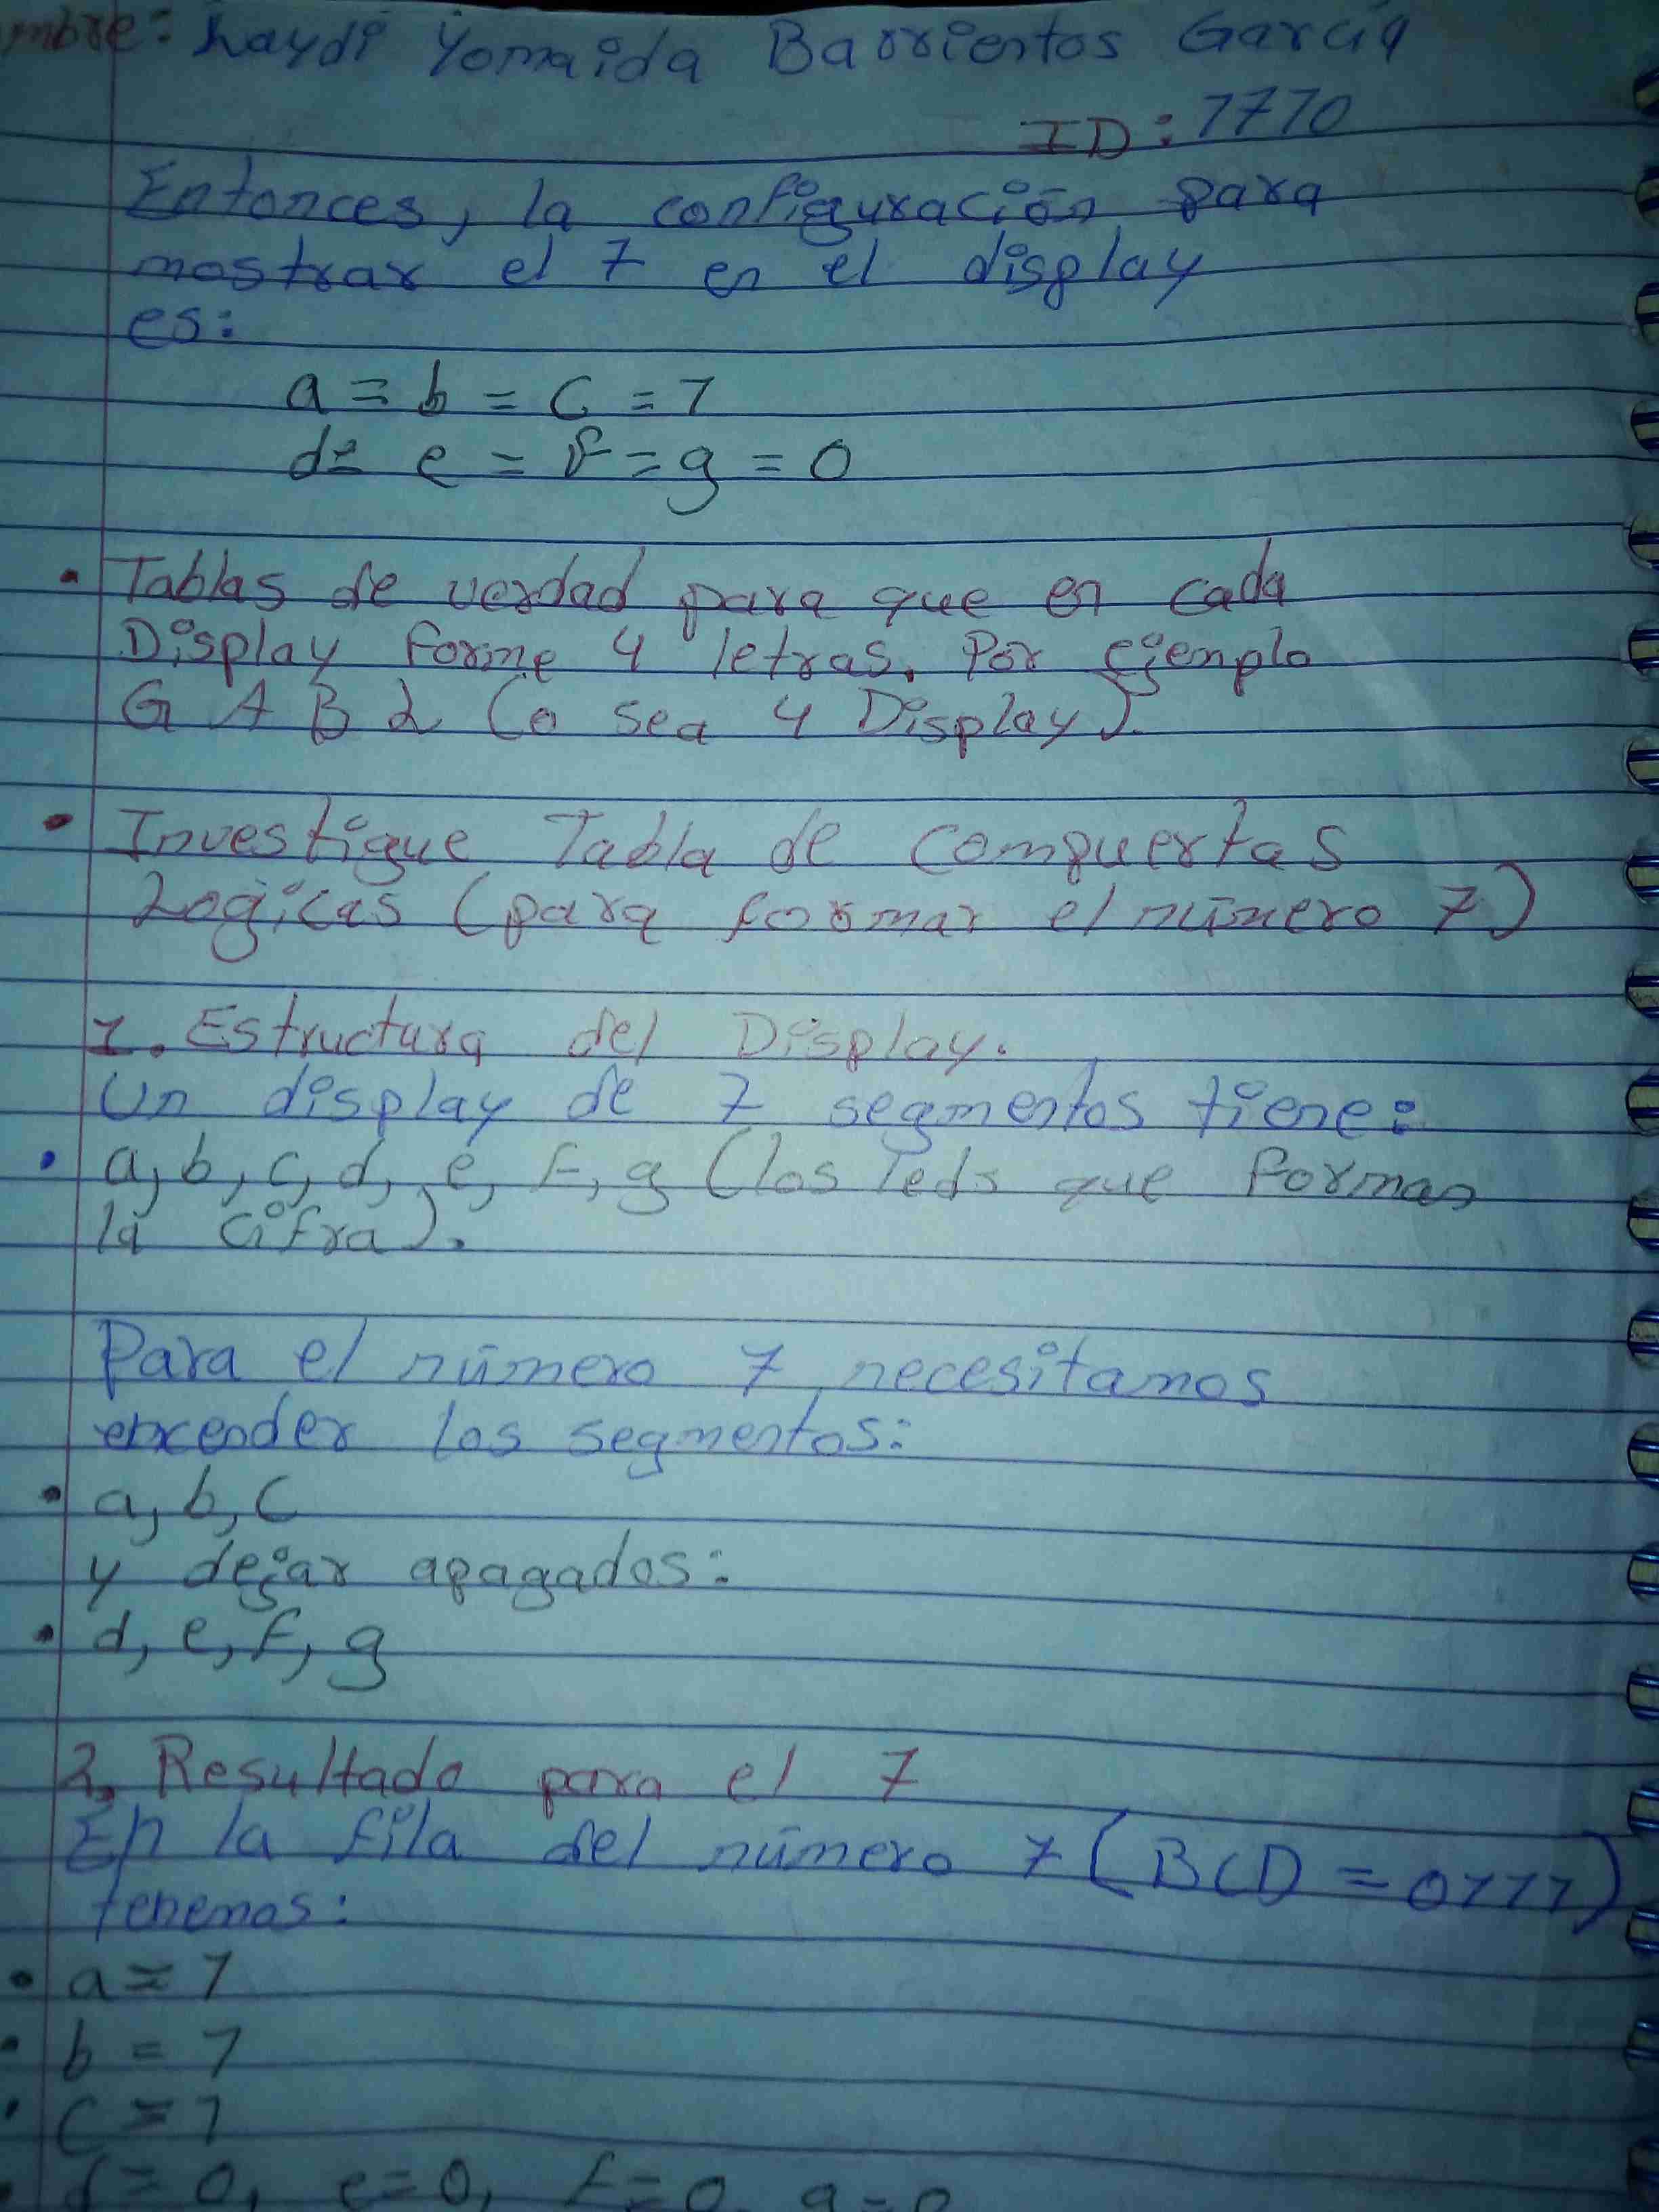 mbre: Laydi Yomaida Barrientos García
ID: 1110
Entonces, la configuración para
mostrar el 7 en el display
es:
a = b = c = 1
d = e = f = g = 0
• Tablas de verdad para que en cada
Display forme 4 letras. Por ejemplo
G A B L (o sea 4 Display).
• Investigue Tabla de compuertas
Logicas (para formar el número 7)
1. Estructura del Display.
Un display de 7 segmentos tiene:
• a, b, c, d, e, f, g (los leds que forman
la cifra).
Para el número 7 necesitamos
encender los segmentos:
• a, b, c
y dejar apagados:
• d, e, f, g
2. Resultado para el 7
En la fila del número 7 (BCD = 0111)
tenemos:
• a = 1
• b = 1
• c = 1
• d = 0, e = 0, f = 0, g = 0